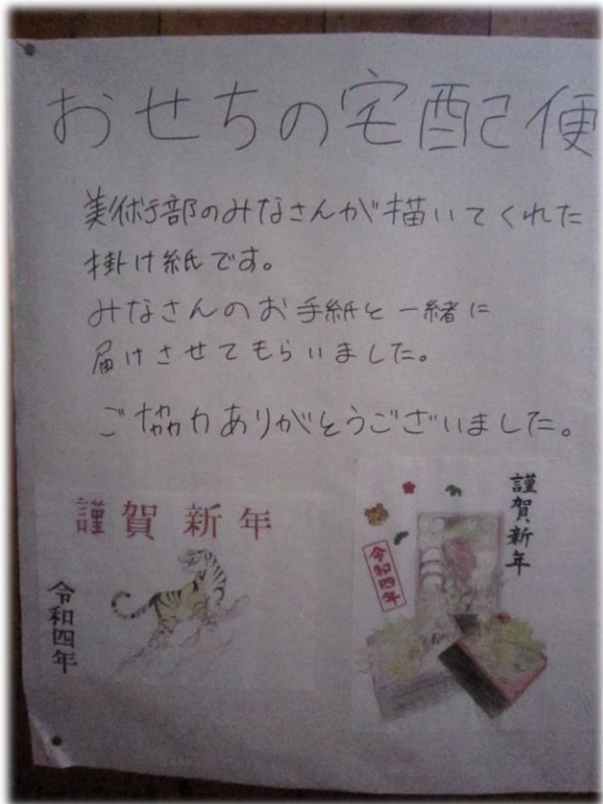 おせちの宅配便
美術部のみなさんが描いてくれた
掛け紙です。
みなさんのお手紙と一緒に
届けさせてもらいました。
ご協力ありがとうございました。
謹賀新年
令和四年
謹賀新年
令和四年